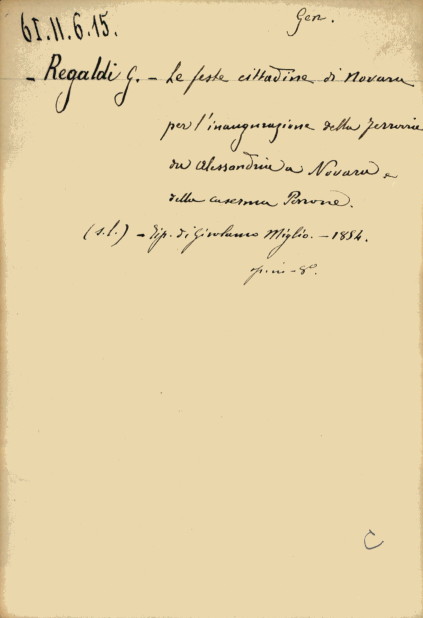 61.II.6.15.
Gen.
- Regaldi G. - Le feste cittadine di Novara
per l'inaugurazione della Ferrovia
da Alessandria a Novara e
della caserma Perrone.
(s.l.) - Tip. di Girolamo Miglio. - 1854.
op. in-8°.
C